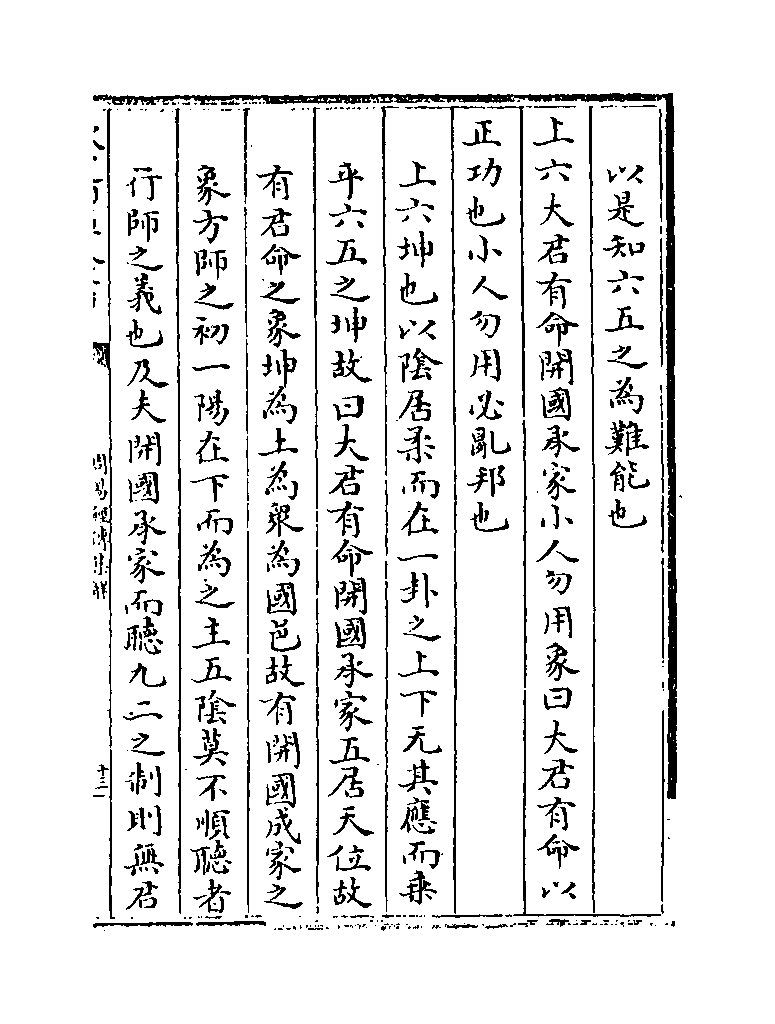 以是知六五之為難能也
上六大君有命開國承家小人勿用象曰大君有命以
正功也小人勿用必亂邦也
上六坤也以陰居柔而在一卦之上下无其應而乗
乎六五之坤故曰大君有命開國承家五居天位故
有君命之象坤為土為衆為國邑故有開國成家之
象方師之初一陽在下而為之主五陰莫不順聽者
行師之義也及夫開國承家而聽九二之制則無君
周易經傳集解
十三